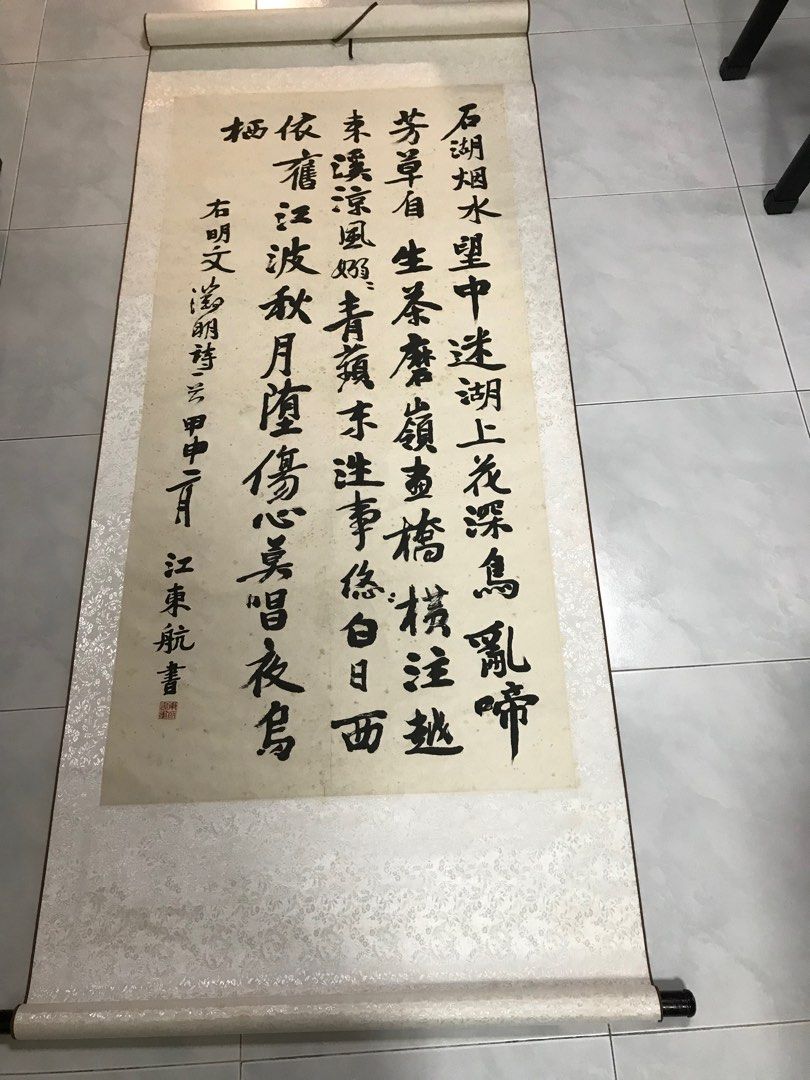 石湖烟水望中迷湖上花深鳥亂啼
芳草自生茶磨嶺畫橋横注越
来溪涼風嫋〻青蘋末往事悠〻白日西
依舊江波秋月堕傷心莫唱夜烏
栖
右明文徵明詩一首甲申二月 江東航書